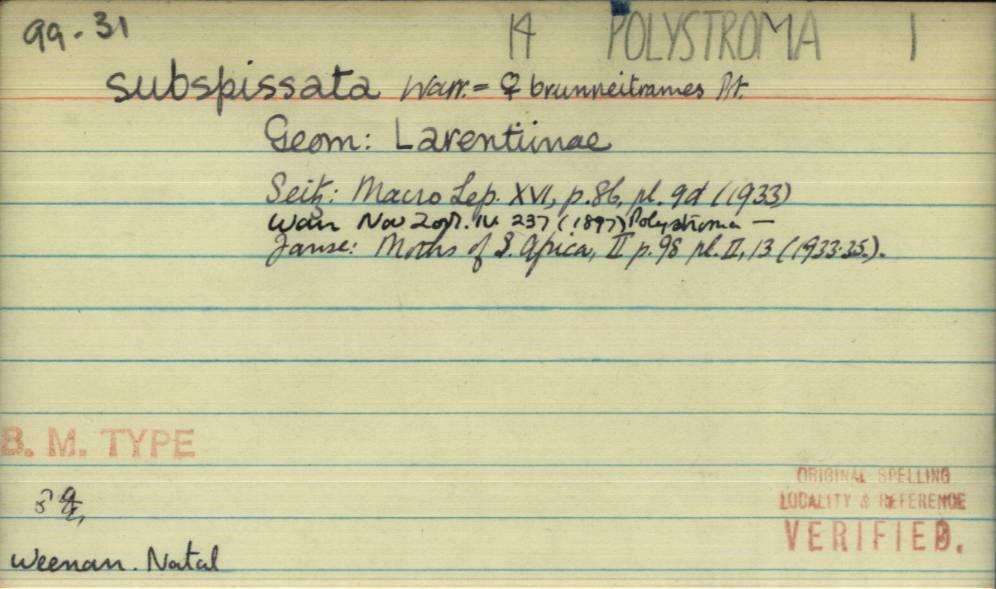 99.31
14 POLYSTROMA 1
subspissata Warr. = ♀ brunneitrames Pt.
Geom: Larentiinae
Seitz: Macro Lep. XVI, p. 86, pl. 9d (1933)
Warr Nov Zool. IV. 237 (1897) Polystroma —
Janse: Moths of S. Africa, II p. 98 pl. II, 13 (1933-35.).
B. M. TYPE
♀,
Weenan. Natal
ORIGINAL SPELLING
LOCALITY & REFERENCE
VERIFIED.